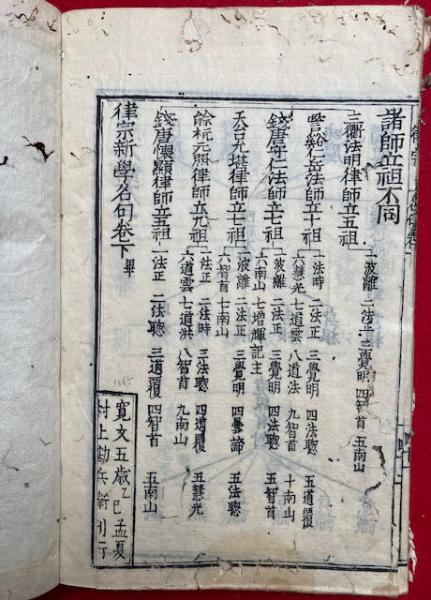 諸師立祖不同
三衢法明律師立五祖 一波離 二法正 三覺明 四智首 五南山
霅谿仁岳法師立十祖 一法時 二法正 三覺明 四法聰 五道覆
六慧光 七道雲 八道法 九智首 十南山
錢唐守仁律師立七祖 一波離 二法正 三覺明 四法聰 五智首
六南山 七增輝記主
天台允堪律師立七祖 一波離 二法正 三覺明 四曇諦 五法聰
六智首 七南山
餘杭元照律師立九祖 一法正 二法時 三法聰 四道覆 五慧光
六道雲 七道洪 八智首 九南山
錢唐懷顯律師立五祖 一法正 二法聰 三道覆 四智首 五南山
律宗新學名句卷下 畢
寬文五歲乙巳孟夏
村上勘兵衛刊行